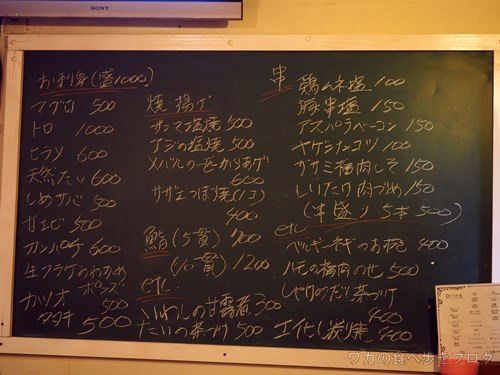 お刺身(盛1000)
マグロ 500
トロ 1000
ヒラメ 600
天然たい 600
しめサバ 500
甘エビ 500
カンパチ 600
生クラゲのわかめ
ポンズ 500
カツオ
タタキ 500
焼揚げ
サンマ塩焼 500
アジの塩焼 500
メバルの一匹からあげ
600
サザエつぼ焼(1コ)
400
鮨(5貫) 700
(10貫) 1200
etc
いわしの甘露煮 300
たいの茶づけ 500
串 鶏ムネ塩 100
豚串塩 150
アスパラベーコン 150
ヤゲンナンコツ 100
ササミ梅肉しそ 150
しいたけ肉づめ 150
(串盛り 5本 500)
etc
400
ハモの梅肉のせ 500
茶づけ
400
エイヒレ炭焼 400
Drink
ワカの食べ歩きブログ